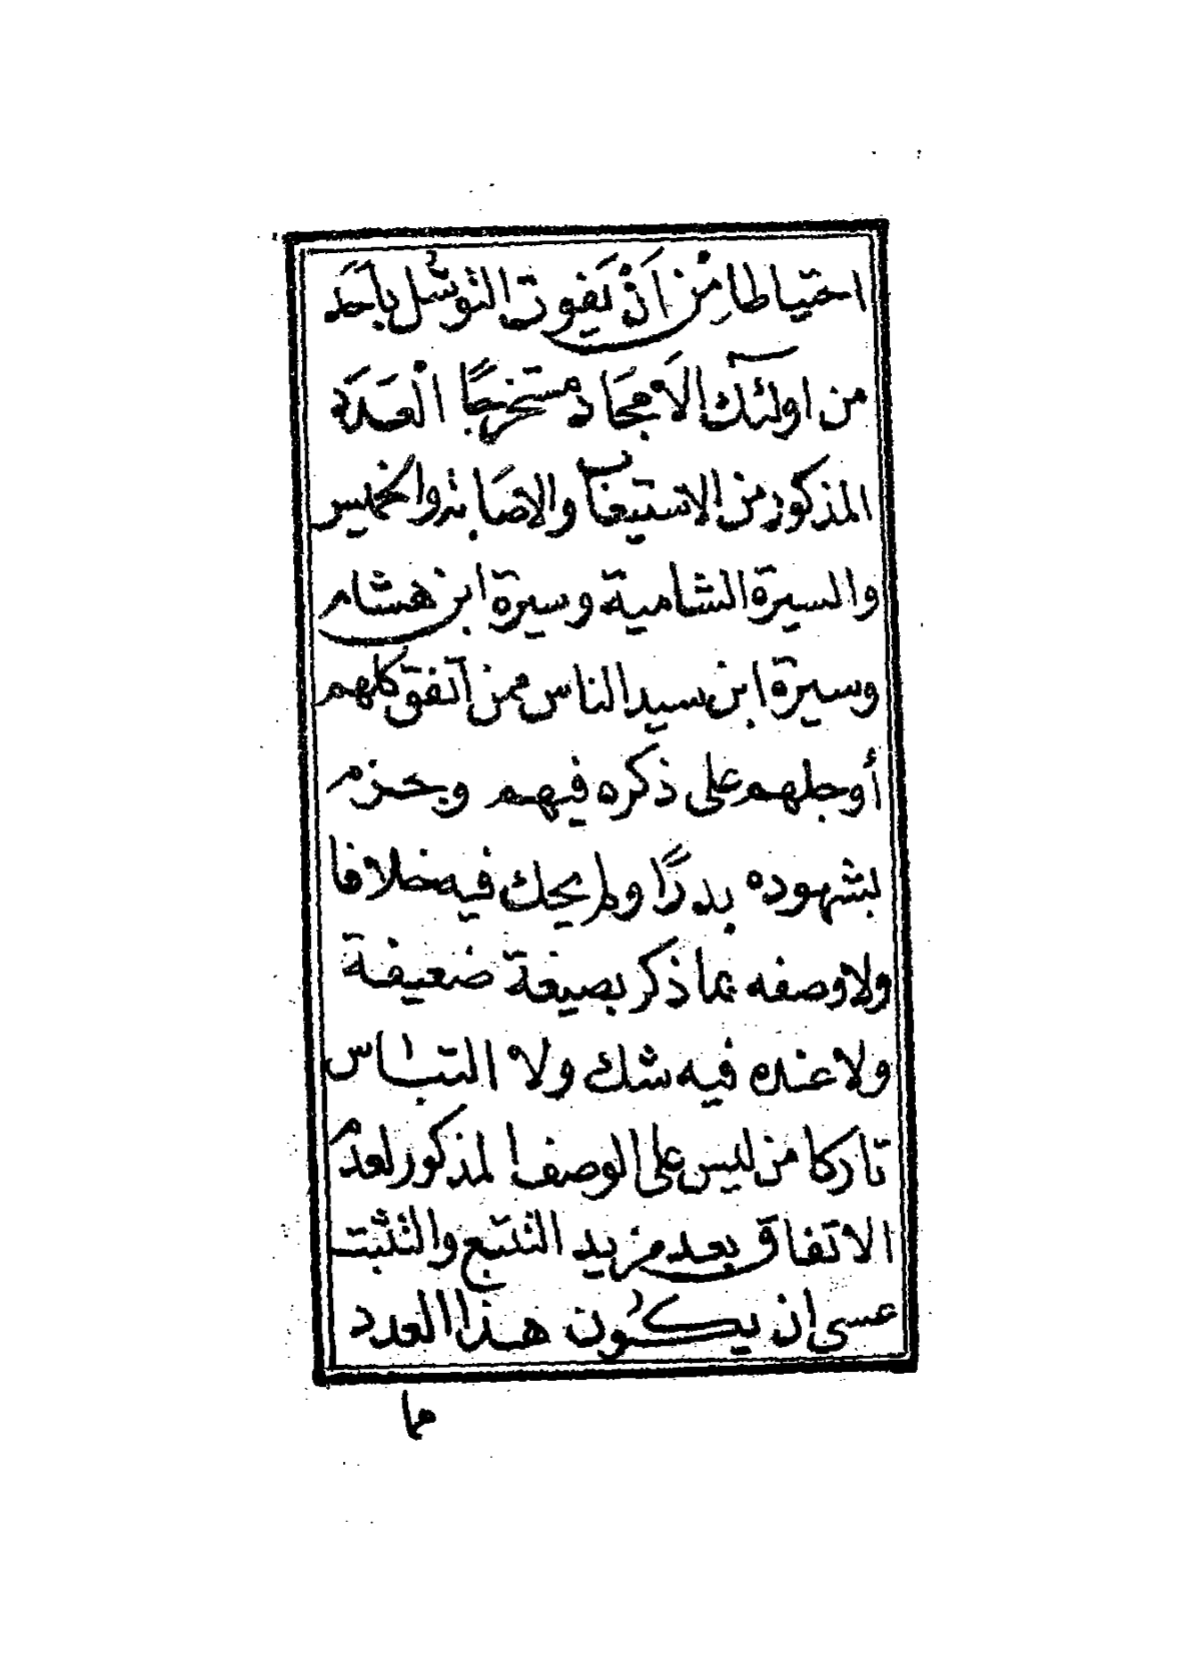 احتياطا مِنْ اَنْ يَفوت التوسُّل بأحَد
من اولئك الاَمجَاد مستخرجًا الْعَدَدَ
المذكور من الاستيعاب والاصَابة والخميس
والسيرة الشامية وسيرة ابن هشام
وسيرة ابن سيد الناس ممن اتفق كلهم
أوجلهم على ذكره فيهم وجزم
بشهوده بدرًا ولم يحك فيه خلافا
ولا وصفه بما ذكر بصيغة ضعيفة
ولا عنده فيه شك ولا التباس
تاركا من ليس على الوصف المذكور لعدم
الاتفاق بعد مزيد التتبع والتثبت
عسى ان يكُون هذا العدد